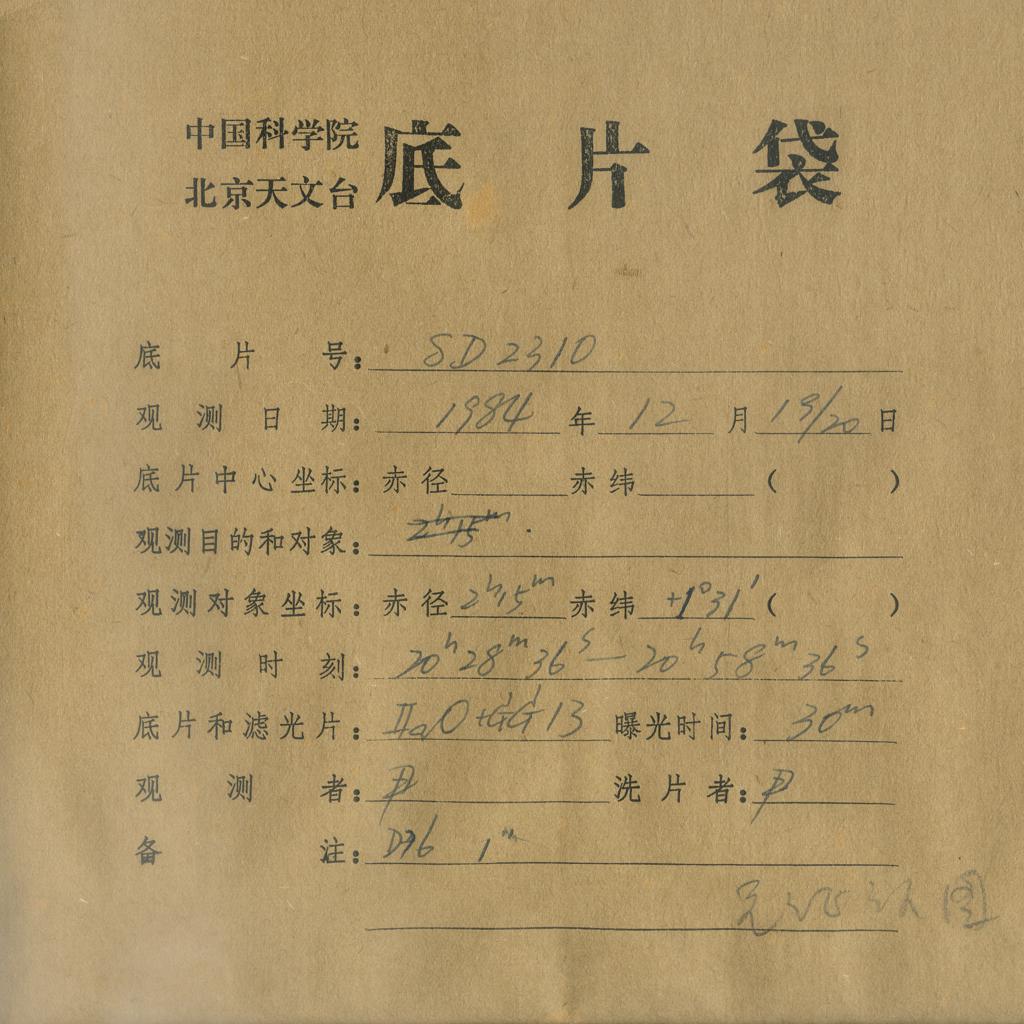 中国科学院
北京天文台 底片袋
底片号: SD2310
观测日期: 1984年12月19/20日
底片中心坐标: 赤径 赤纬 ( )
观测目的和对象: 2h15m
观测对象坐标: 赤径 2h15m 赤纬 +1°31′ ( )
观测时刻: 20h28m36s—20h58m36s
底片和滤光片: IIaO+GG13 曝光时间: 30m
观测者: 尹 洗片者: 尹
备注: D76 1m
图